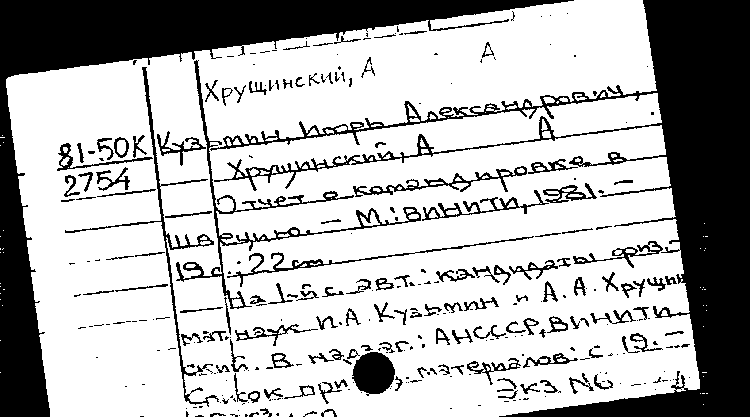 Хрущинский, А А
81-50К Кузьмин, Игорь Александрович,
2754 Хрущинский, А А
Отчет о командировке в
Швецию. – М.: ВИНИТИ, 1981. –
19 с.; 22 см.
На 1-й с. авт.: кандидаты физ.-
мат. наук И.А. Кузьмин и А.А. Хрущин
ский. В надзаг.: АНСССР, ВИНИТИ.
Список материалов: с 19. –
Экз. N6